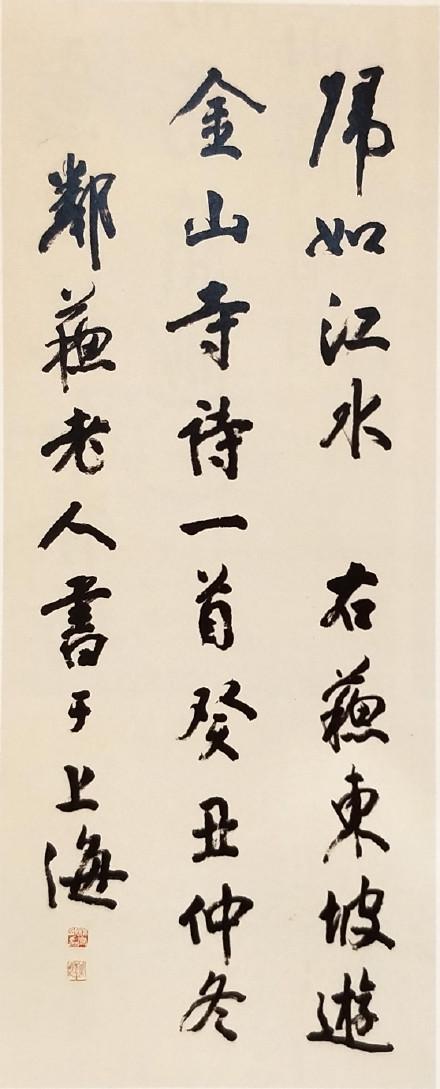 歸如江水 右蘇東坡遊
金山寺詩一首癸丑仲冬
鄰蘇老人書于上海